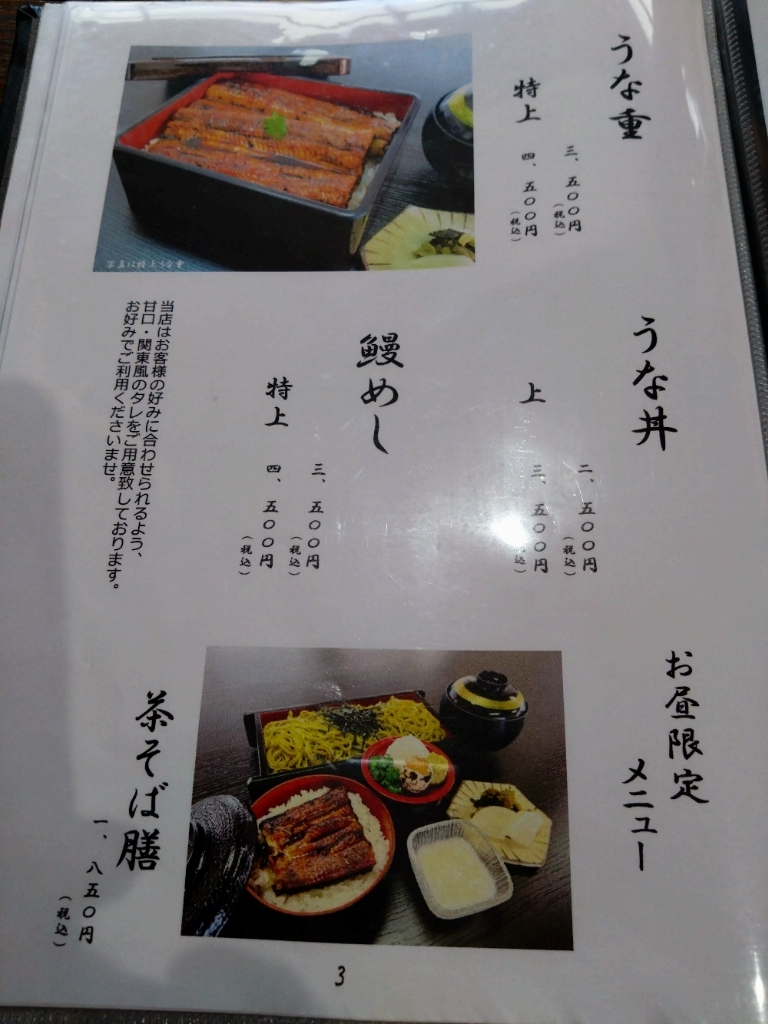 うな重
三、五〇〇円
(税込)
特上
四、五〇〇円
(税込)
写真は特上うな重
うな丼
二、五〇〇円
(税込)
上
三、五〇〇円
(税込)
鰻めし
三、五〇〇円
(税込)
特上
四、五〇〇円
(税込)
当店はお客様の好みに合わせられるよう、
甘口・関東風のタレをご用意致しております。
お好みでご利用くださいませ。
お昼限定
メニュー
茶そば膳
一、八五〇円
(税込)
3